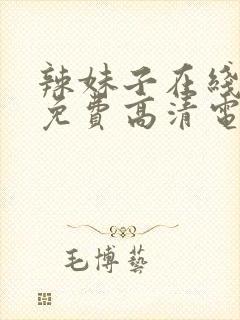 辣妹子在綫
免費高清電
毛博藝